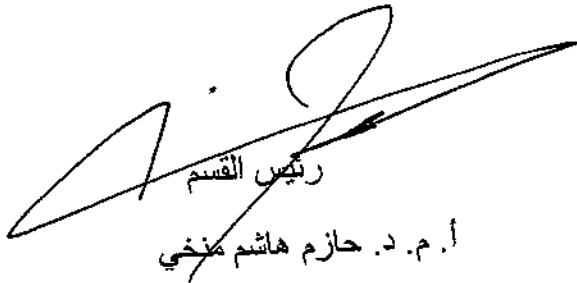 رئيس القسم
أ. م. د. حازم هاشم منخي